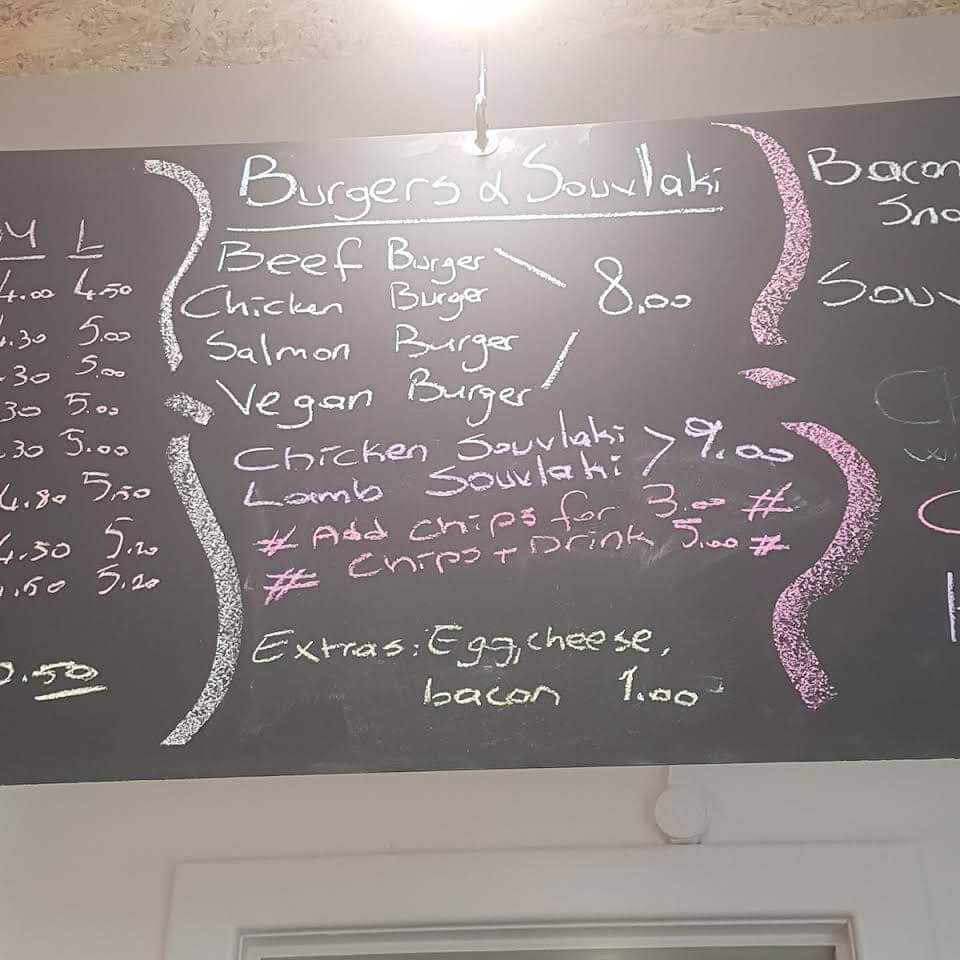 M L
4.00 4.50
.30 5.00
.30 5.00
30 5.00
.30 5.00
4.80 5.50
4.50 5.20
.50 5.20
.50
Burgers & Souvlaki
Beef Burger
Chicken Burger
8.00
Salmon Burger
Vegan Burger
Chicken Souvlaki > 9.00
Lamb Souvlaki
# Add chips for 3.00 #
# chips + Drink 5.00 #
Extras: Egg, cheese,
bacon 1.00
Bacon